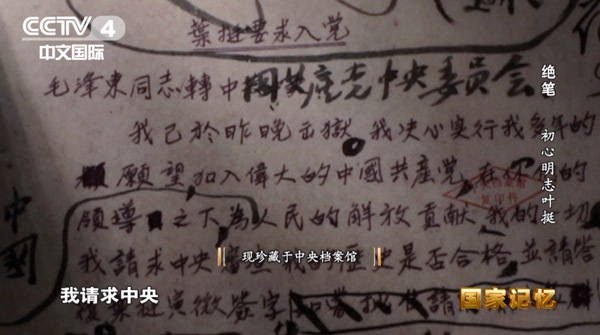 CCTV 4
中文国际
葉挺要求入党
毛泽東同志轉中國共産党中央委員会
我已於昨晚出獄。我决心实行我多年的
願望加入偉大的中國共産党,在你們的
領導之下為人民的解放貢献我的一切
我請求中央 我的歷史是否合格並請答
中國
绝笔 初心明志叶挺
复印件
现珍藏于中央档案馆
我请求中央
国家记忆